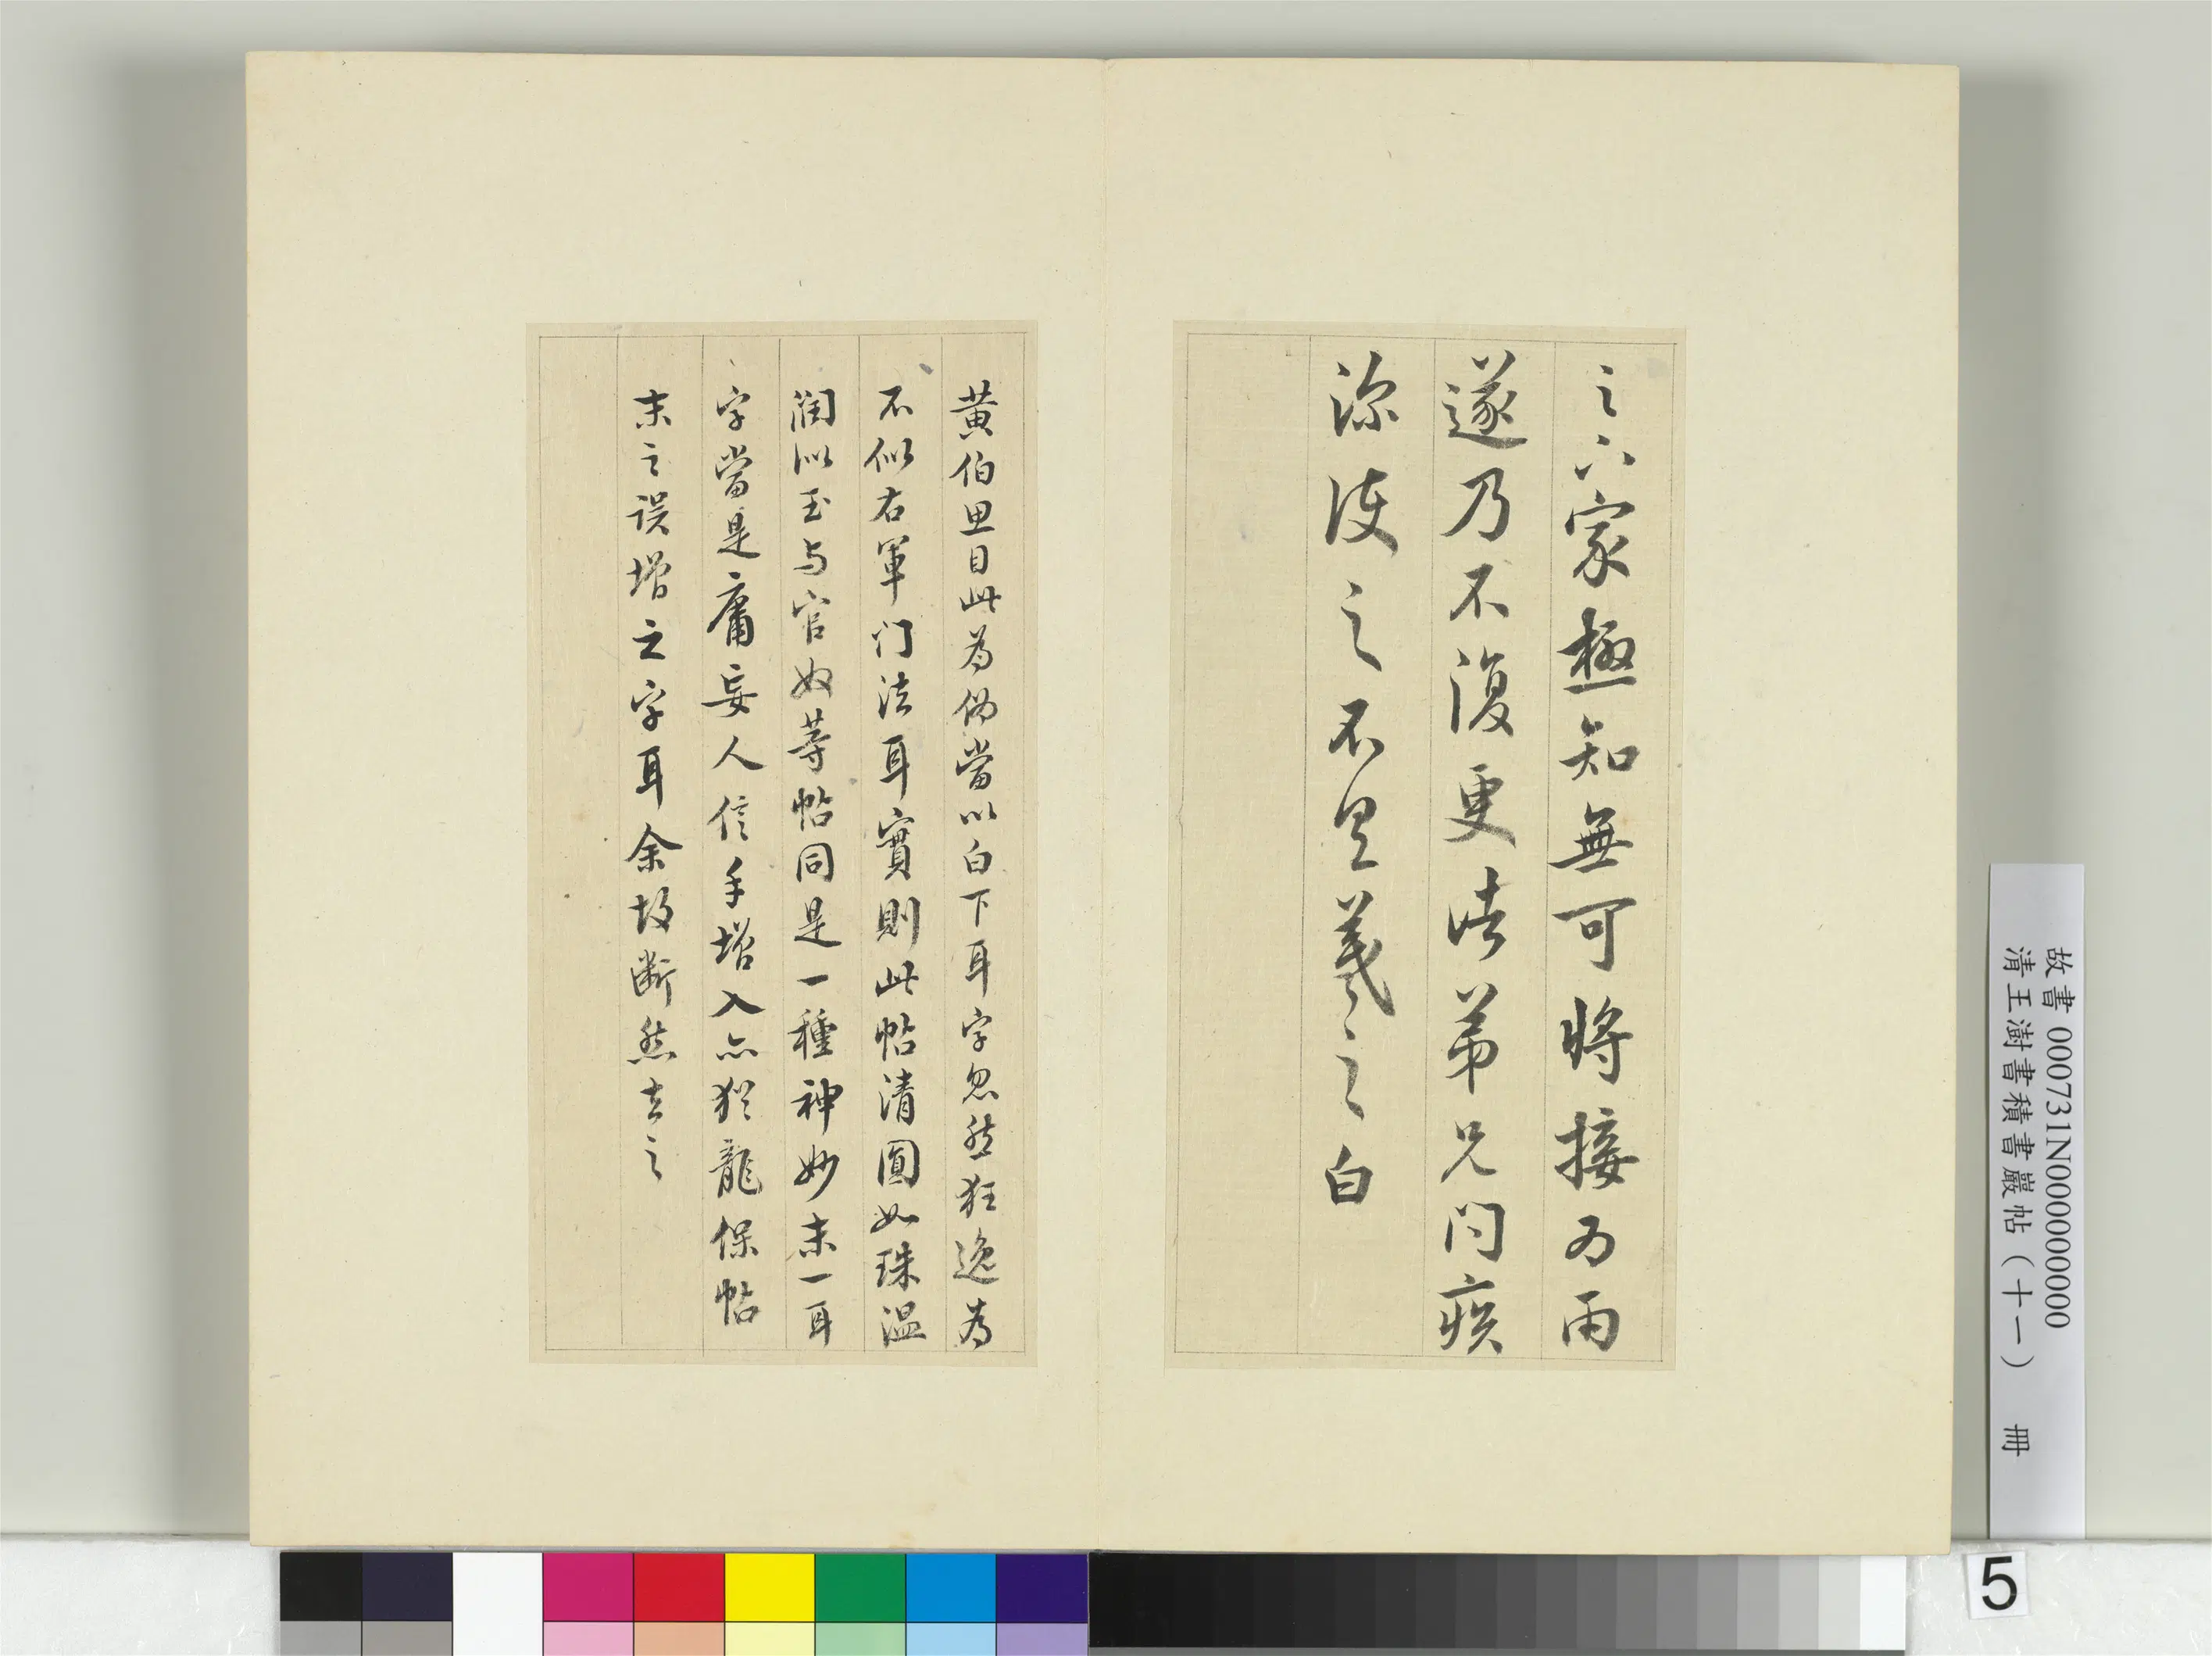 之六家極知無可將接為雨
遂乃不復更諸弟兄問疾
深護之不具羲之白
黄伯思目此為偽當以白下耳字忽然狂逸為
不似右軍门法耳實則此帖清圓如珠温
潤似玉与官奴等帖同是一種神妙末一耳
字當是庸妄人信手增入亦猶龍保帖
末之误增之字耳余故断然去之
故書 000731N000000000
清王澍書積書巖帖（十一） 冊
5